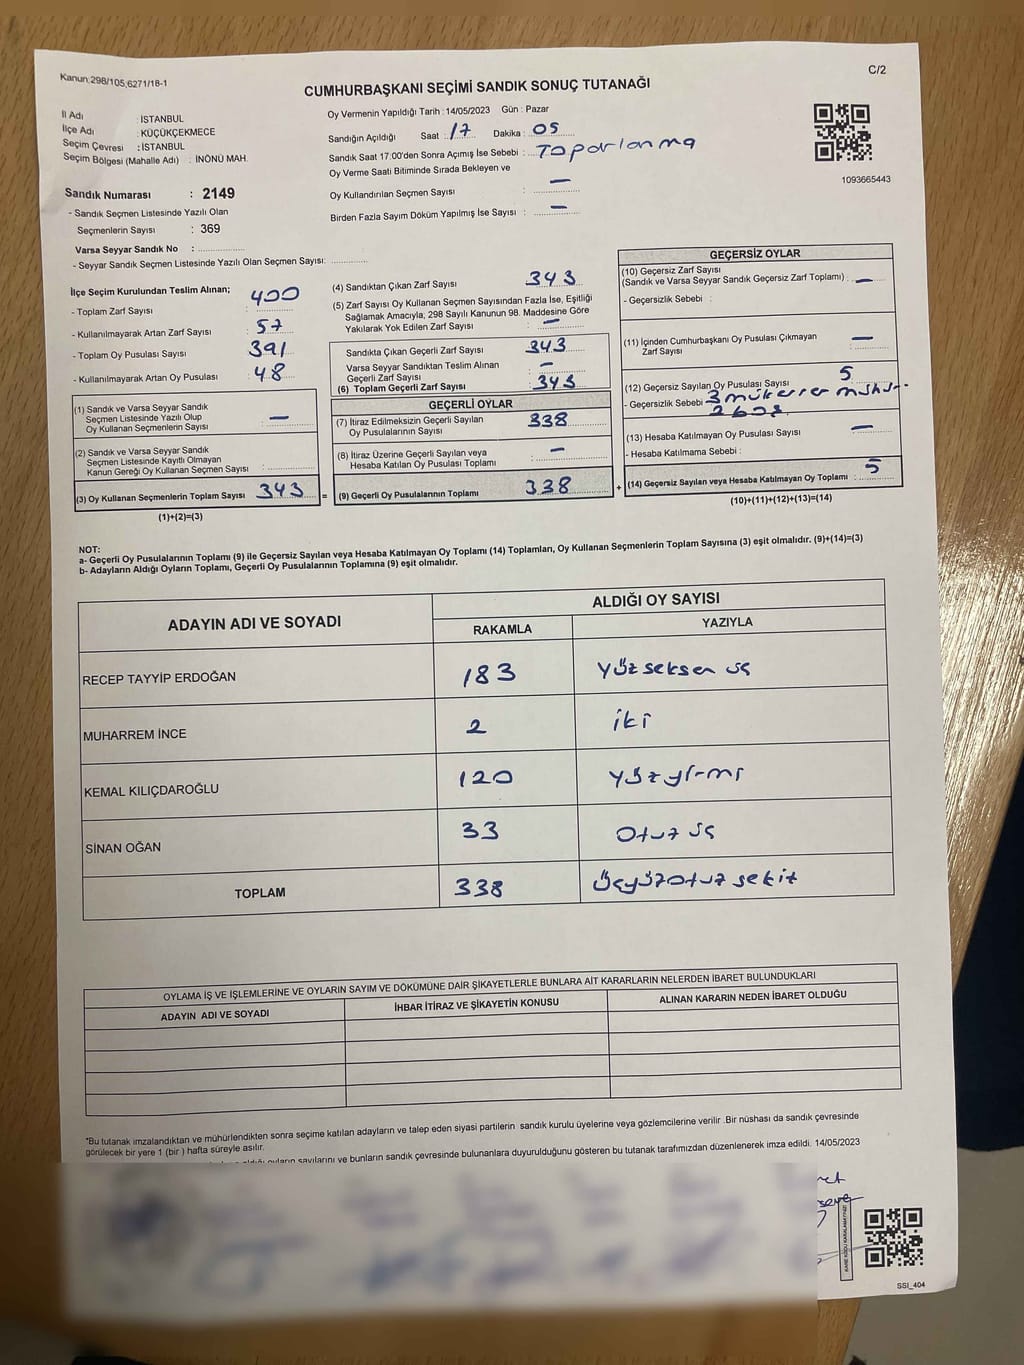 Kanun:298/105;6271/18-1
C/2
CUMHURBAŞKANI SEÇİMİ SANDIK SONUÇ TUTANAĞI
İl Adı : İSTANBUL
İlçe Adı : KÜÇÜKÇEKMECE
Seçim Çevresi : İSTANBUL
Seçim Bölgesi (Mahalle Adı) : İNÖNÜ MAH.
Sandık Numarası : 2149
- Sandık Seçmen Listesinde Yazılı Olan
Seçmenlerin Sayısı : 369
Varsa Seyyar Sandık No :
- Seyyar Sandık Seçmen Listesinde Yazılı Olan Seçmen Sayısı:
Oy Vermenin Yapıldığı Tarih : 14/05/2023 Gün : Pazar
Sandığın Açıldığı Saat : 17 Dakika : 05
Sandık Saat 17:00'den Sonra Açımış İse Sebebi : Toparlanma
Oy Verme Saati Bitiminde Sırada Bekleyen ve
Oy Kullandırılan Seçmen Sayısı : —
Birden Fazla Sayım Döküm Yapılmış İse Sayısı : —
1093665443
İlçe Seçim Kurulundan Teslim Alınan;
- Toplam Zarf Sayısı : 400
- Kullanılmayarak Artan Zarf Sayısı : 57
- Toplam Oy Pusulası Sayısı : 391
- Kullanılmayarak Artan Oy Pusulası : 48
(1) Sandık ve Varsa Seyyar Sandık
Seçmen Listesinde Yazılı Olup
Oy Kullanan Seçmenlerin Sayısı : —
(2) Sandık ve Varsa Seyyar Sandık
Seçmen Listesinde Kayıtlı Olmayan
Kanun Gereği Oy Kullanan Seçmen Sayısı :
(3) Oy Kullanan Seçmenlerin Toplam Sayısı 343 =
(1)+(2)=(3)
(4) Sandıktan Çıkan Zarf Sayısı : 343
(5) Zarf Sayısı Oy Kullanan Seçmen Sayısından Fazla İse, Eşitliği
Sağlamak Amacıyla, 298 Sayılı Kanunun 98. Maddesine Göre
Yakılarak Yok Edilen Zarf Sayısı : —
Sandıkta Çıkan Geçerli Zarf Sayısı : 343
Varsa Seyyar Sandıktan Teslim Alınan
Geçerli Zarf Sayısı : —
(6) Toplam Geçerli Zarf Sayısı : 343
GEÇERLİ OYLAR
(7) İtiraz Edilmeksizin Geçerli Sayılan
Oy Pusulalarının Sayısı : 338
(8) İtiraz Üzerine Geçerli Sayılan veya
Hesaba Katılan Oy Pusulası Toplamı : —
(9) Geçerli Oy Pusulalarının Toplamı : 338 +
GEÇERSİZ OYLAR
(10) Geçersiz Zarf Sayısı
(Sandık ve Varsa Seyyar Sandık Geçersiz Zarf Toplamı) : —
- Geçersizlik Sebebi :
(11) İçinden Cumhurbaşkanı Oy Pusulası Çıkmayan
Zarf Sayısı : —
(12) Geçersiz Sayılan Oy Pusulası Sayısı : 5
- Geçersizlik Sebebi 3 mükerrer mühür
(13) Hesaba Katılmayan Oy Pusulası Sayısı : —
- Hesaba Katılmama Sebebi :
(14) Geçersiz Sayılan veya Hesaba Katılmayan Oy Toplamı : 5
(10)+(11)+(12)+(13)=(14)
NOT:
a- Geçerli Oy Pusulalarının Toplamı (9) ile Geçersiz Sayılan veya Hesaba Katılmayan Oy Toplamı (14) Toplamları, Oy Kullanan Seçmenlerin Toplam Sayısına (3) eşit olmalıdır. (9)+(14)=(3)
b- Adayların Aldığı Oyların Toplamı, Geçerli Oy Pusulalarının Toplamına (9) eşit olmalıdır.
ADAYIN ADI VE SOYADI ALDIĞI OY SAYISI
RAKAMLA YAZIYLA
RECEP TAYYİP ERDOĞAN 183 Yüz seksen üç
MUHARREM İNCE 2 iki
KEMAL KILIÇDAROĞLU 120 yüz yirmi
SİNAN OĞAN 33 Otuz üç
TOPLAM 338 Üçyüzotuz sekiz
OYLAMA İŞ VE İŞLEMLERİNE VE OYLARIN SAYIM VE DÖKÜMÜNE DAİR ŞİKAYETLERLE BUNLARA AİT KARARLARIN NELERDEN İBARET BULUNDUKLARI
ADAYIN ADI VE SOYADI İHBAR İTİRAZ VE ŞİKAYETİN KONUSU ALINAN KARARIN NEDEN İBARET OLDUĞU
*Bu tutanak imzalandıktan ve mühürlendikten sonra seçime katılan adayların ve talep eden siyasi partilerin sandık kurulu üyelerine veya gözlemcilerine verilir .Bir nüshası da sandık çevresinde
görülecek bir yere 1 (bir ) hafta süreyle asılır.
oyların sayılarını ve bunların sandık çevresinde bulunanlara duyurulduğunu gösteren bu tutanak tarafımızdan düzenlenerek imza edildi. 14/05/2023
SSI_404